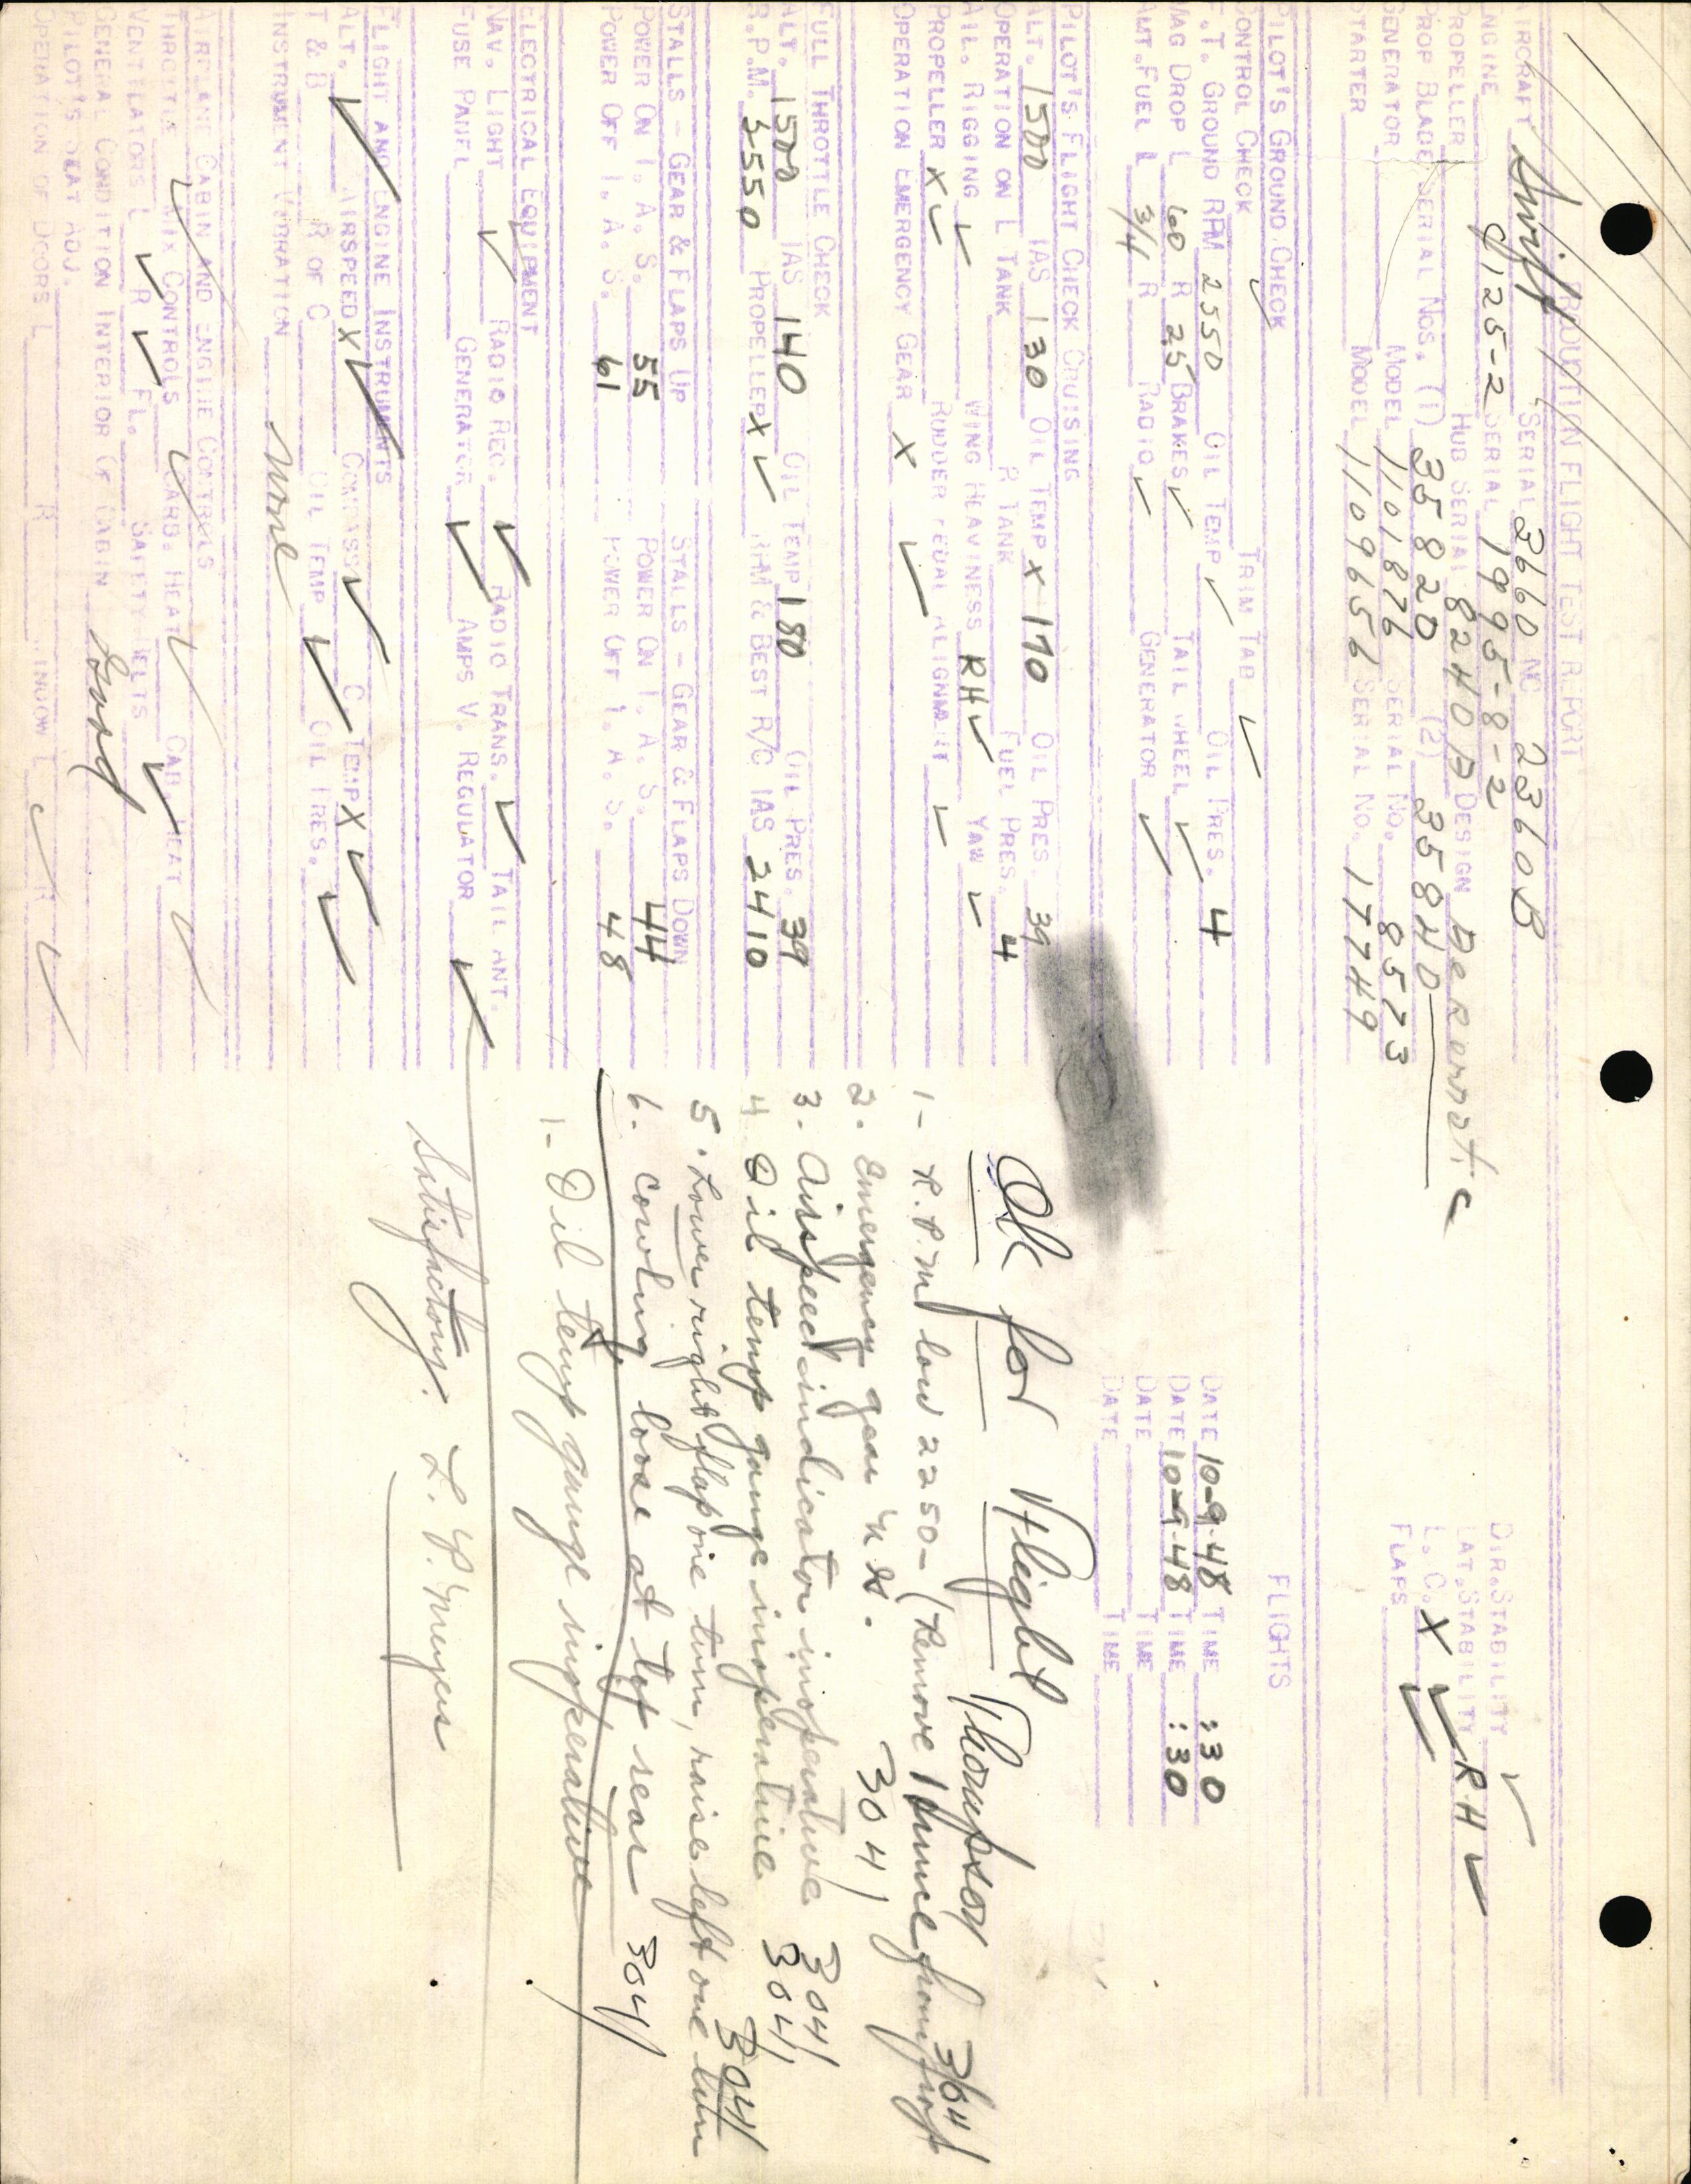 PRODUCTION FLIGHT TEST REPORT
AIRCRAFT Swift SERIAL 3660 NC 2360B
ENGINE C125-2 SERIAL 19995-8-2
PROPELLER HUB SERIAL 8240B DESIGN Aeromatic
PROP BLADE SERIAL NOS. (1) 35820 (2) 35840
GENERATOR MODEL 1101876 SERIAL NO. 8573
STARTER MODEL 1109656 SERIAL NO. 17749
DIR. STABILITY ✓
LAT. STABILITY RH ✓
L. C. X ✓
FLAPS ✓
PILOT'S GROUND CHECK
CONTROL CHECK ✓ TRIM TAB ✓
F.T. GROUND RPM 2550 OIL TEMP ✓ OIL PRES. 4
MAG DROP L 60 R 25 BRAKES ✓ TAIL WHEEL ✓
AMT. FUEL L 3/4 R RADIO ✓ GENERATOR ✓
FLIGHTS
DATE 10-9-48 TIME :30
DATE 10-9-48 TIME :30
DATE TIME
DATE TIME
PILOT'S FLIGHT CHECK CRUISING
ALT. 1500 IAS 130 OIL TEMP X 170 OIL PRES. 39
OPERATION ON L TANK R TANK FUEL PRES. 4
AIL. RIGGING ✓ WING HEAVINESS RH ✓ YAW ✓
PROPELLER X ✓ RUDDER PEDAL ALIGNMENT ✓
OPERATION EMERGENCY GEAR X ✓
FULL THROTTLE CHECK
ALT. 1500 IAS 140 OIL TEMP 180 OIL PRES. 39
R.P.M. 3550 PROPELLER X ✓ RPM & BEST R/C IAS 2410
STALLS - GEAR & FLAPS UP STALLS - GEAR & FLAPS DOWN
POWER ON I. A. S. 55 POWER ON I. A. S. 44
POWER OFF I. A. S. 61 POWER OFF I. A. S. 48
ELECTRICAL EQUIPMENT
NAV. LIGHT ✓ RADIO REC. ✓ RADIO TRANS. ✓ TAIL ANT.
FUSE PANEL GENERATOR ✓ AMPS V. REGULATOR ✓
FLIGHT AND ENGINE INSTRUMENTS
ALT. ✓ AIRSPEED X ✓ COMPASS ✓ C TEMP X ✓
T & B R OF C OIL TEMP ✓ OIL PRES. ✓
INSTRUMENT VIBRATION None
AIRPLANE CABIN AND ENGINE CONTROLS
THROTTLE ✓ MIX CONTROLS ✓ CARB. HEAT ✓ CAB. HEAT ✓
VENTILATORS L ✓ R ✓ FL. SAFETY BELTS ✓
GENERAL CONDITION INTERIOR OF CABIN Good
PILOT'S SEAT ADJ.
OPERATION OF DOORS L R WINDOW L ✓ R ✓
OK for Flight Thompson
1- R.P.M low 2250- (Remove 1 from prop 3041
2. Emergency gear 3041
3. Airspeed indicator inoperative 3041
4. Oil temp gauge inoperative 3041
5. Lower right flap one turn, raise left one turn 3041
6. Cowling loose at top rear 3041
1- Oil temp gauge inoperative
Satisfactory. L. P. Meyers